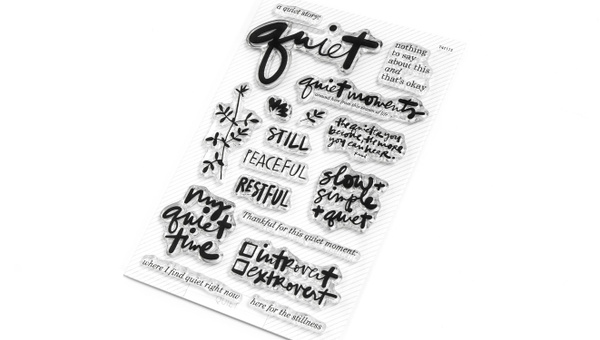 a quiet story:
quiet
nothing
to say
about this
and
that's okay
quiet moments
the quieter you
become, the more
you can hear.
STILL
PEACEFUL
RESTFUL
slow +
simple
+ quiet
my
quiet
time
Thankful for this quiet moment.
introvert
extrovert
where I find quiet right now
here for the stillness